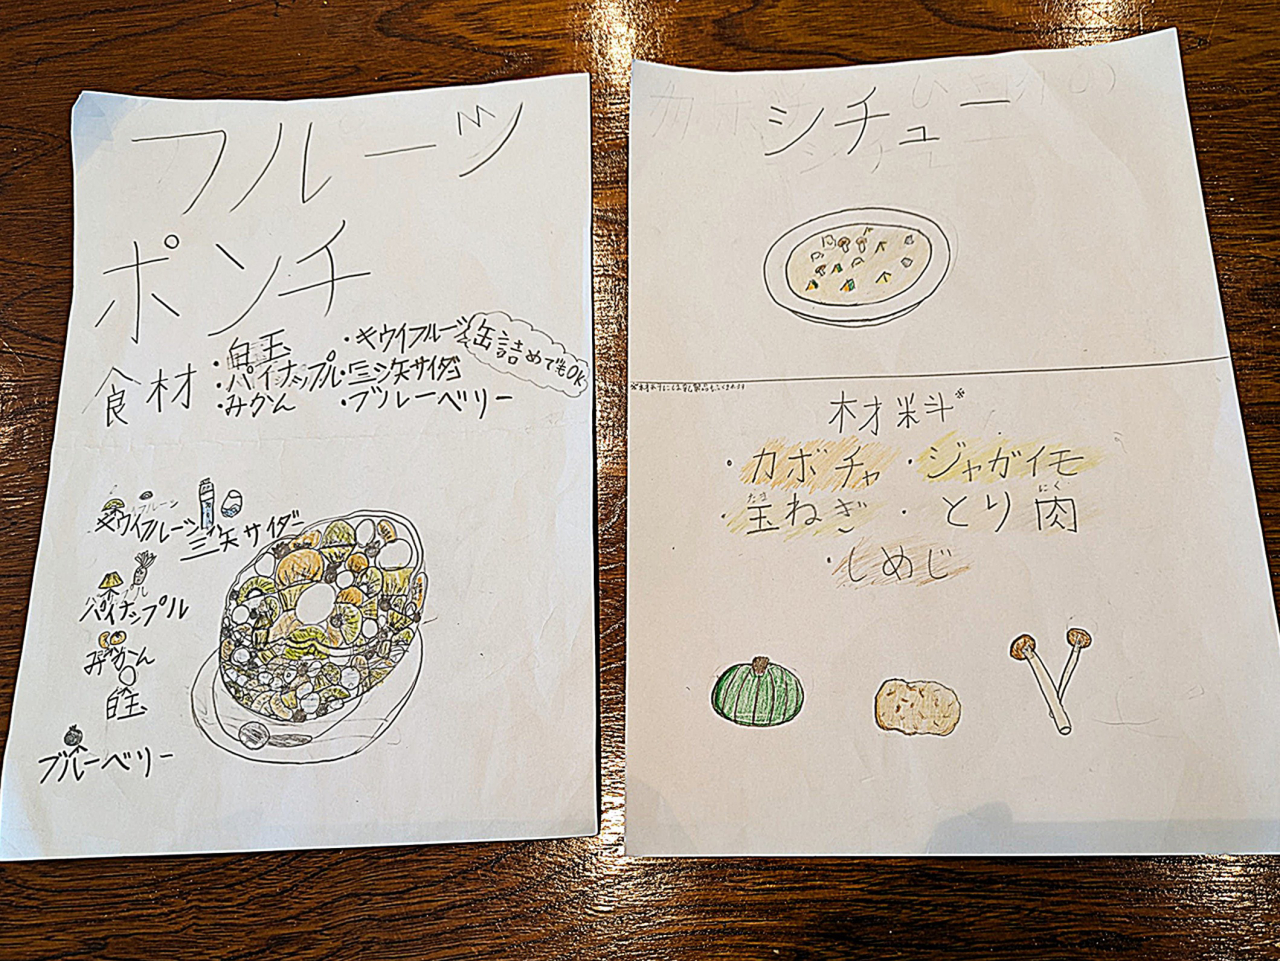 フルーツ
ポンチ
食材
・白玉
・パイナップル
・みかん
・キウイフルーツ
・三ツ矢サイダー
・ブルーベリー
缶詰めでもOK
キウイフルーツ
三ツ矢サイダー
パイナップル
みかん
白玉
ブルーベリー
シチュー
材料※
・カボチャ ・ジャガイモ
たま にく
・玉ねぎ ・とり肉
・しめじ